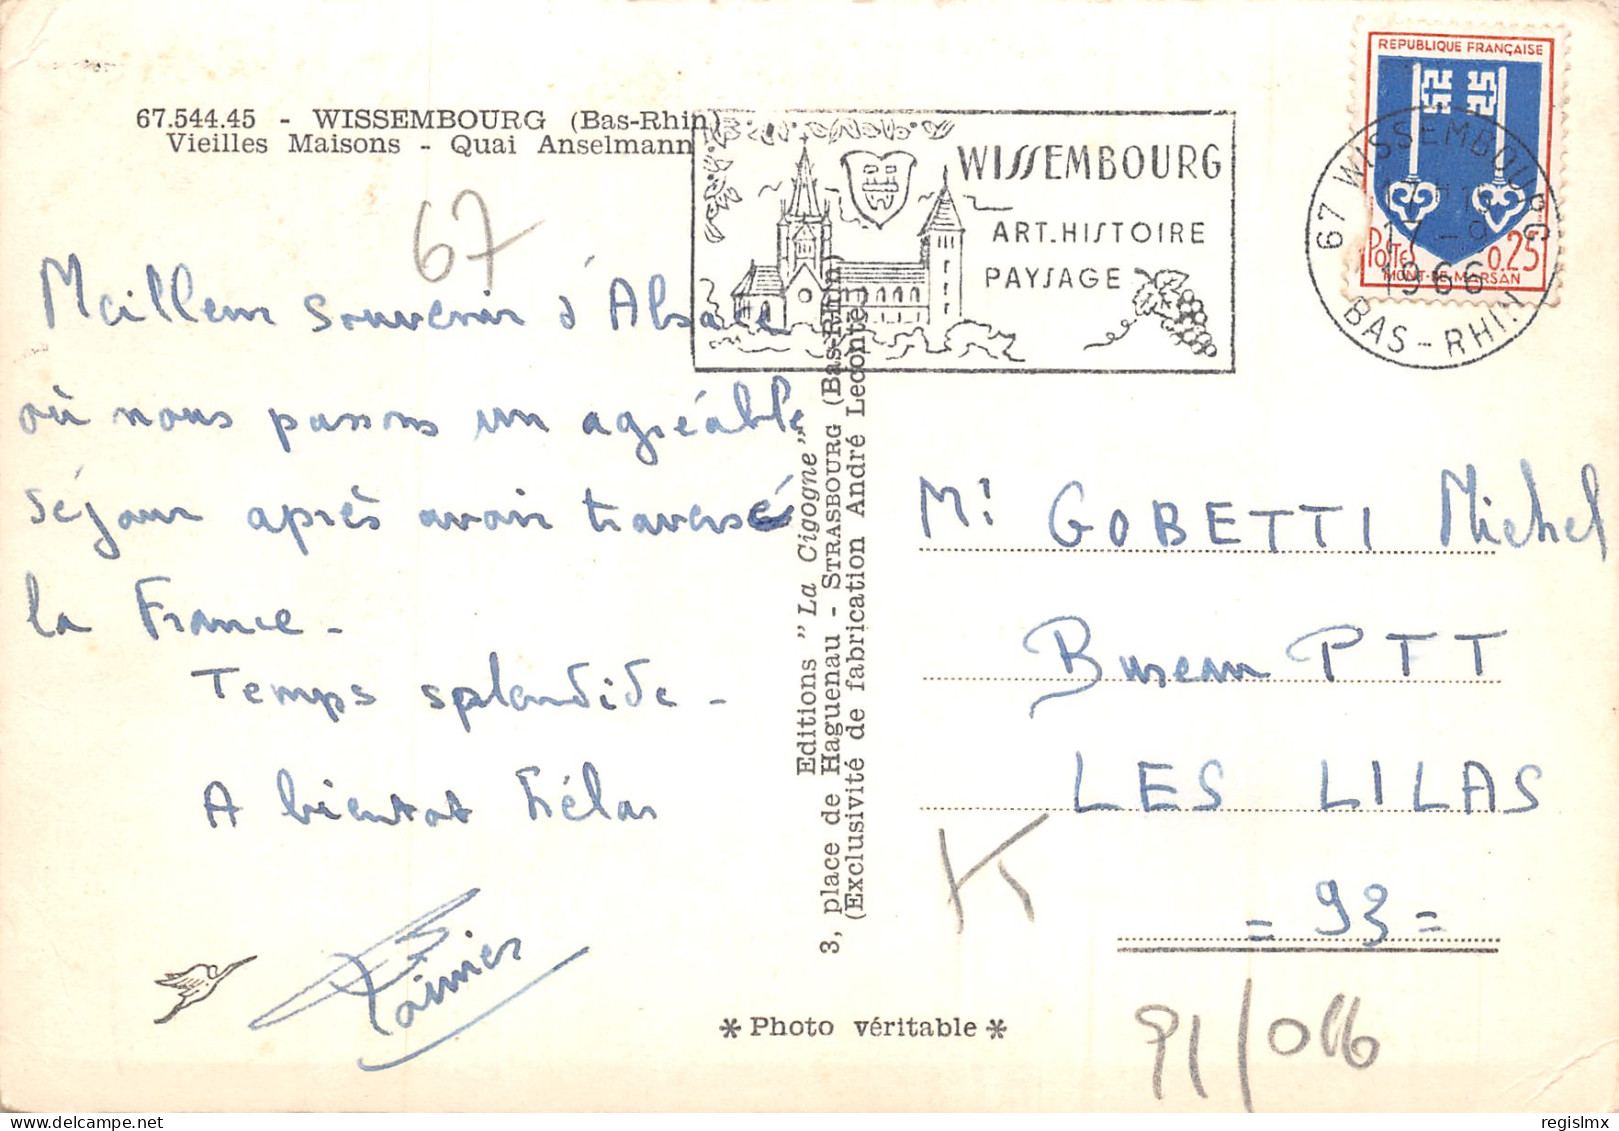 67.544.45 - WISSEMBOURG (Bas-Rhin)
Vieilles Maisons - Quai Anselmann
67
Meilleur souvenir d'Alsace
où nous passons un agréable
séjour après avoir traversé
la France -
Temps splendide -
A bientot
Editions "La Cigogne"
3, place de Haguenau - STRASBOURG (Bas-Rhin)
(Exclusivité de fabrication André Leconte)
* Photo véritable *
WISSEMBOURG
ART. HISTOIRE
PAYSAGE
REPUBLIQUE FRANÇAISE
POSTES 0,25
MONT-DE-MARSAN
67 WISSEMBOURG
17-9
1966
BAS-RHIN
Mr GOBETTI Michel
Bureau PTT
LES LILAS
= 93 =
K
91/016
regislmx
delcampe.net